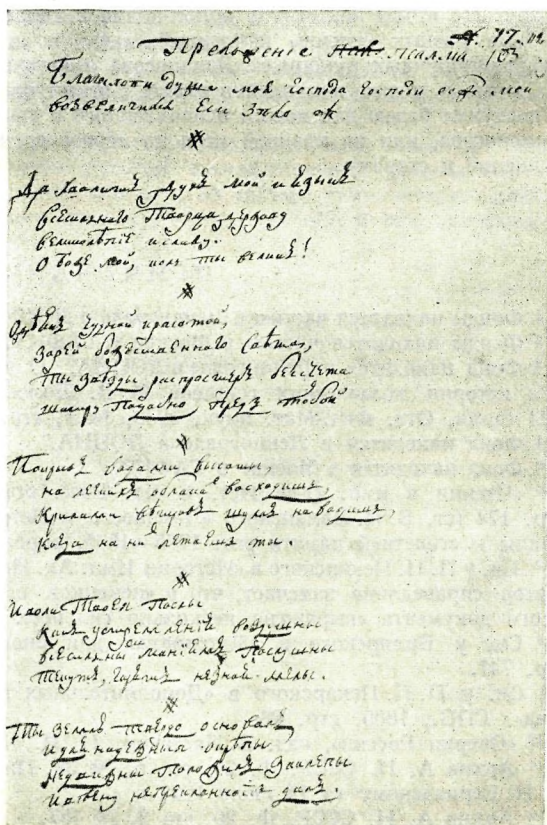 Преложенiе псалма 103
Благослови душе моя Господа Господи Боже мой
возвеличился еси зѣло
Да хвалитъ духъ мой и языкъ
всесильнаго Творца державу
великолѣпiе и славу.
О Боже мой, коль ты великъ!
Одѣянъ чудной красотой,
Зарей божественнаго свѣта,
Ты звѣзды распростеръ безсчета
Шатру подобно предъ тобой
Покрывъ водами высоты
на легкихъ облакахъ восходишь,
Крилами вихровъ шумъ наводишь,
Когда на нихъ летаешь ты.
И воли Твоея Послы
Какъ устремленiя воздушны
всесильнымъ манiямъ послушны
Текутъ, горятъ незная мглы.
Ты землю твердо основалъ
И для надежныя окрѣпы
Недвижны положилъ заклепы
И вѣчну непреклонность далъ.